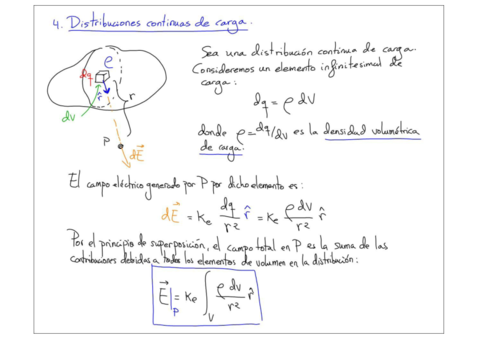 4. Distribuciones continuas de carga.
Sea una distribución continua de carga.
Consideremos un elemento infinitesimal de
carga:
dq = ρ dV
donde ρ = dq/dV es la densidad volumétrica
de carga.
ρ
dq
r̂
r
dV
P
dE⃗
El campo eléctrico generado por P por dicho elemento es:
dE⃗ = Ke dq/r² r̂ = Ke ρ dV/r² r̂
Por el principio de superposición, el campo total en P es la suma de las
contribuciones debidas a todos los elementos de volumen en la distribución:
E⃗|P = Ke ∫V ρ dV/r² r̂